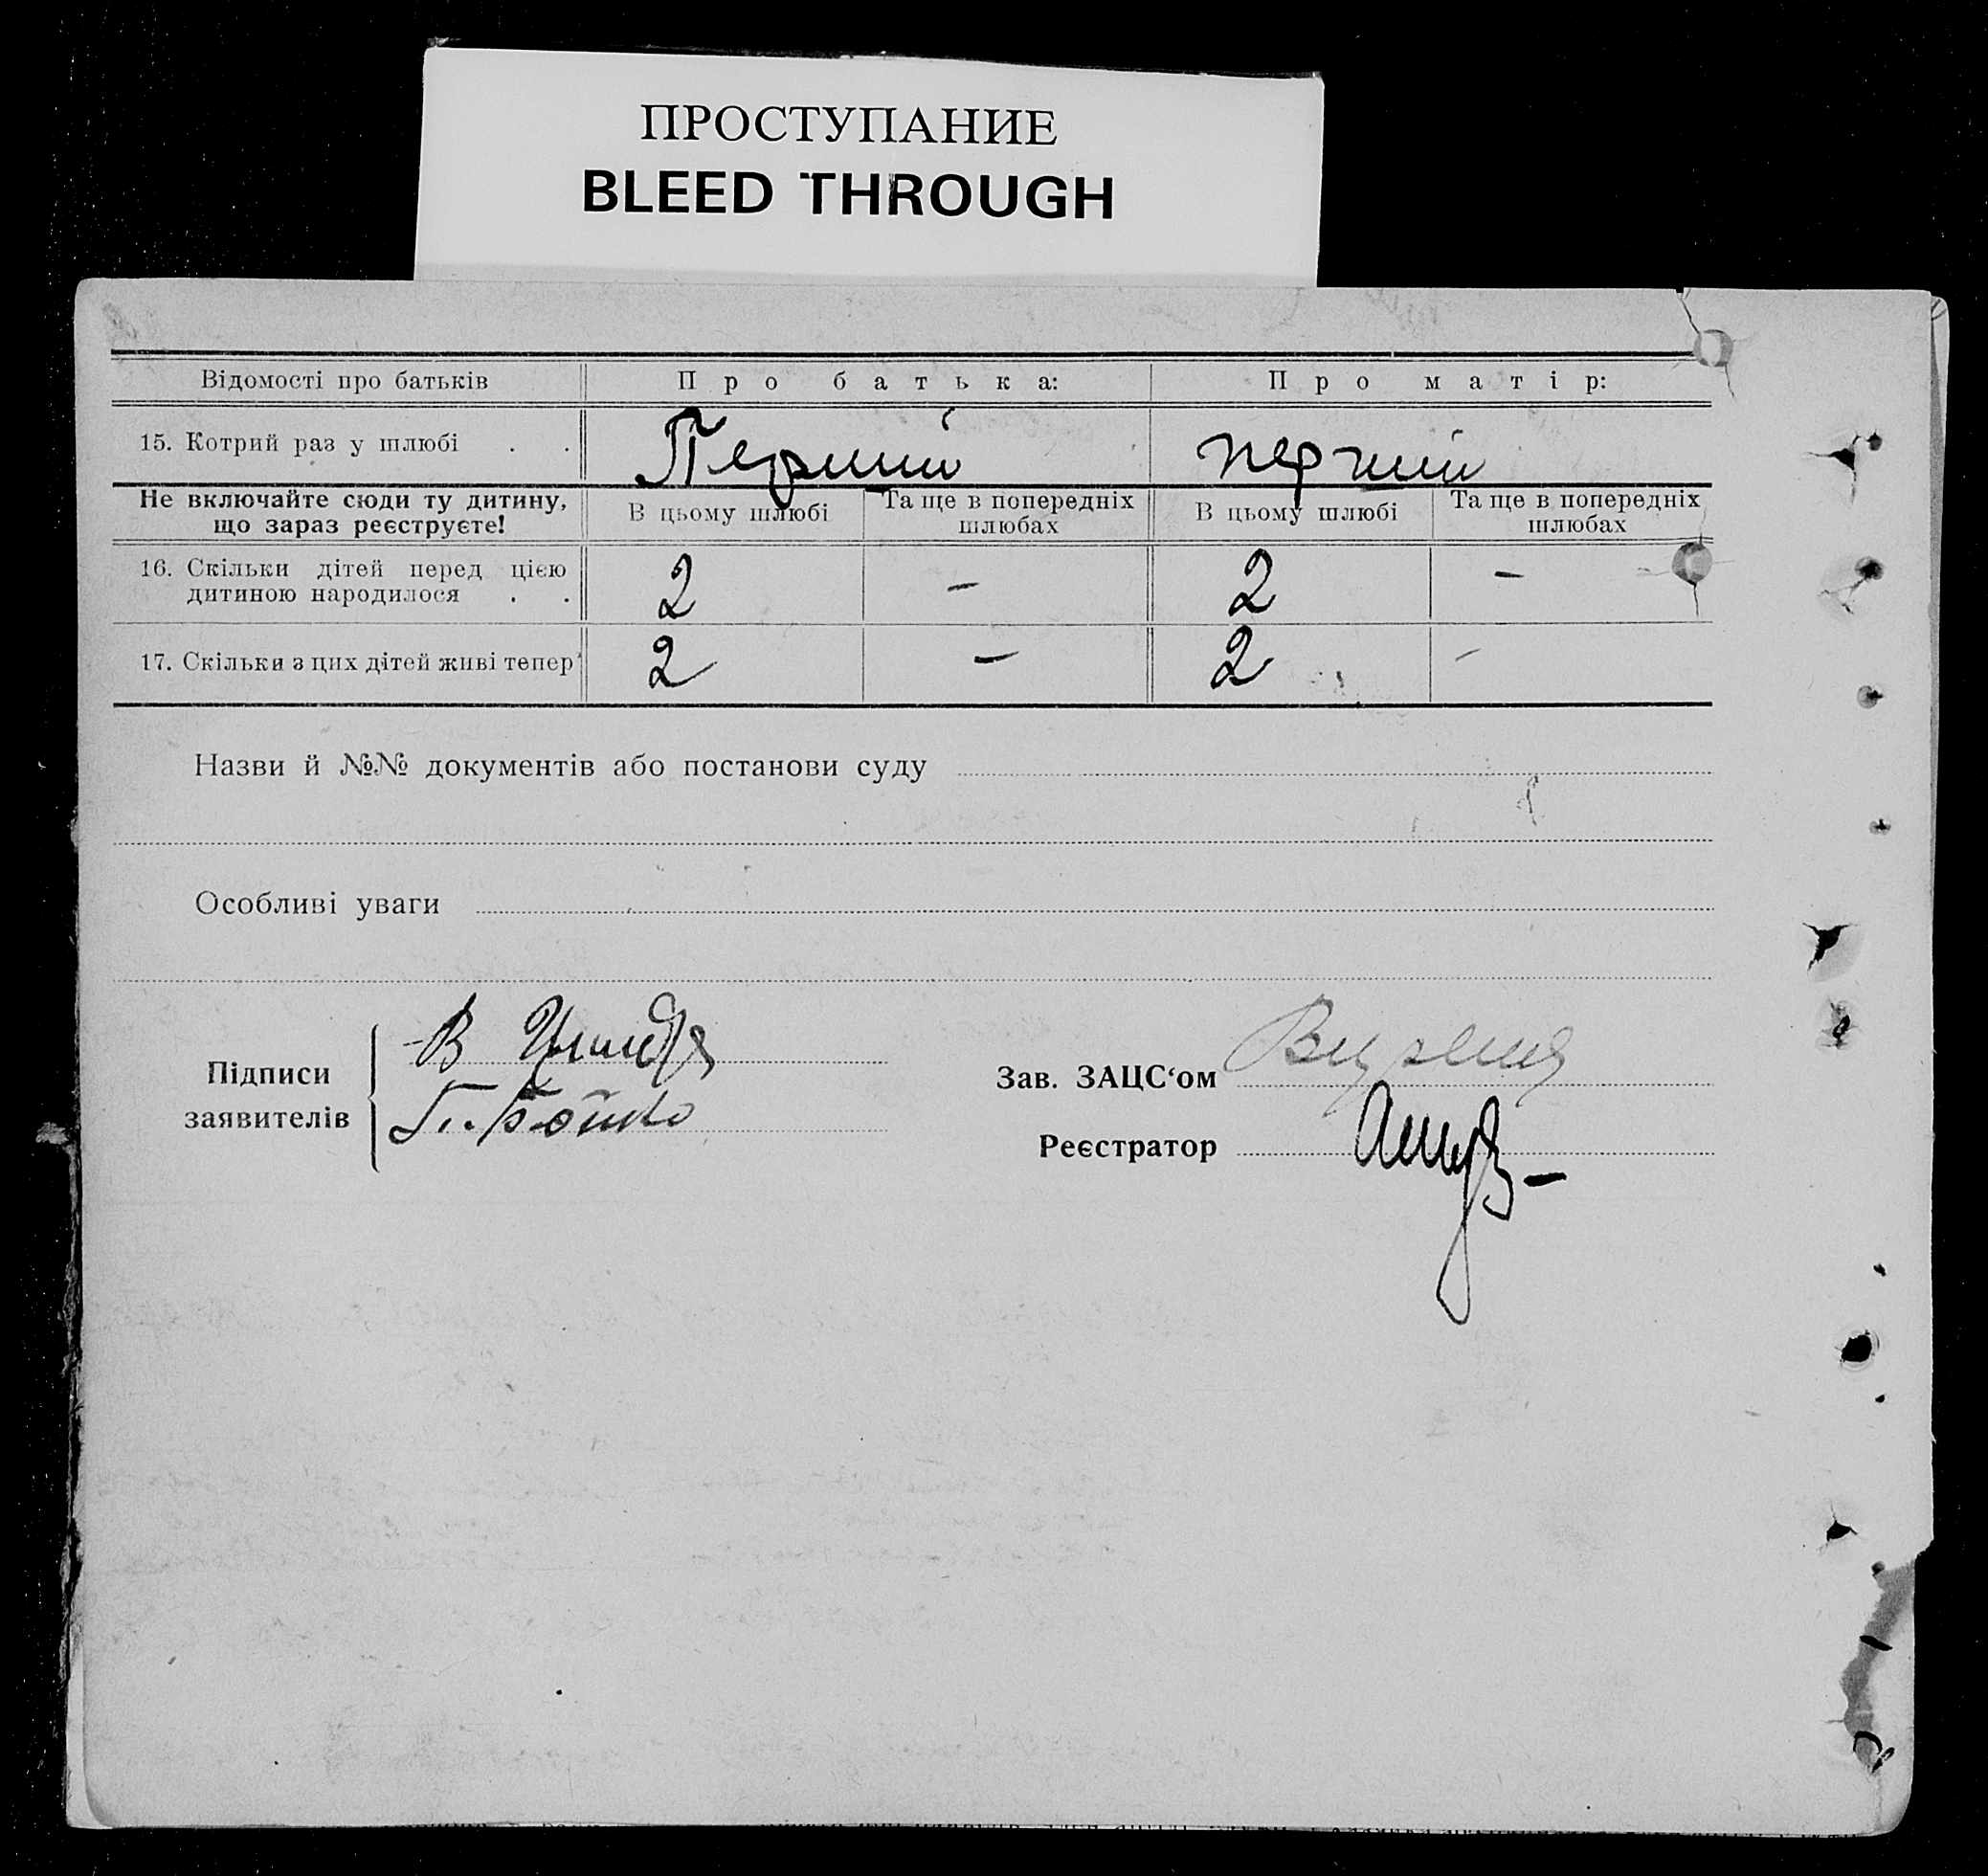 ПРОСТУПАНИЕ
BLEED THROUGH
Відомості про батьків Про батька: Про матір:
15. Котрий раз у шлюбі . . Перший перший
Не включайте сюди ту дитину, що зараз реєструєте! В цьому шлюбі Та ще в попередніх шлюбах В цьому шлюбі Та ще в попередніх шлюбах
16. Скільки дітей перед цією
дитиною народилося . . 2 – 2 –
17. Скільки з цих дітей живі тепер 2 – 2 –
Назви й №№ документів або постанови суду
Особливі уваги
Підписи
заявителів
В
П. Бойко
Зав. ЗАЦС‘ом
Реєстратор